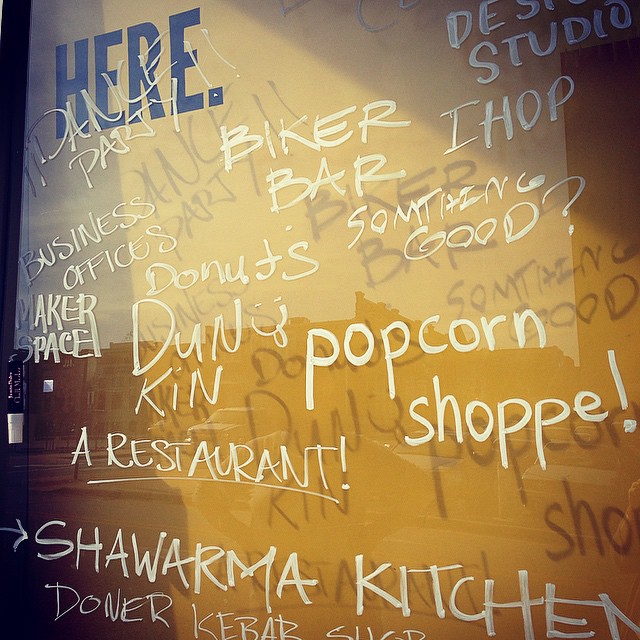 HERE.
DANCE
PARTY!!
BIKER
BAR
STUDIO
IHOP
SOMTHING
GOOD?
BUSINESS
OFFICES
MAKER
SPACE
Donuts
DUN
KIN
popcorn
shoppe!
A RESTAURANT!
→SHAWARMA KITCHEN
DONER KEBAB SHOP